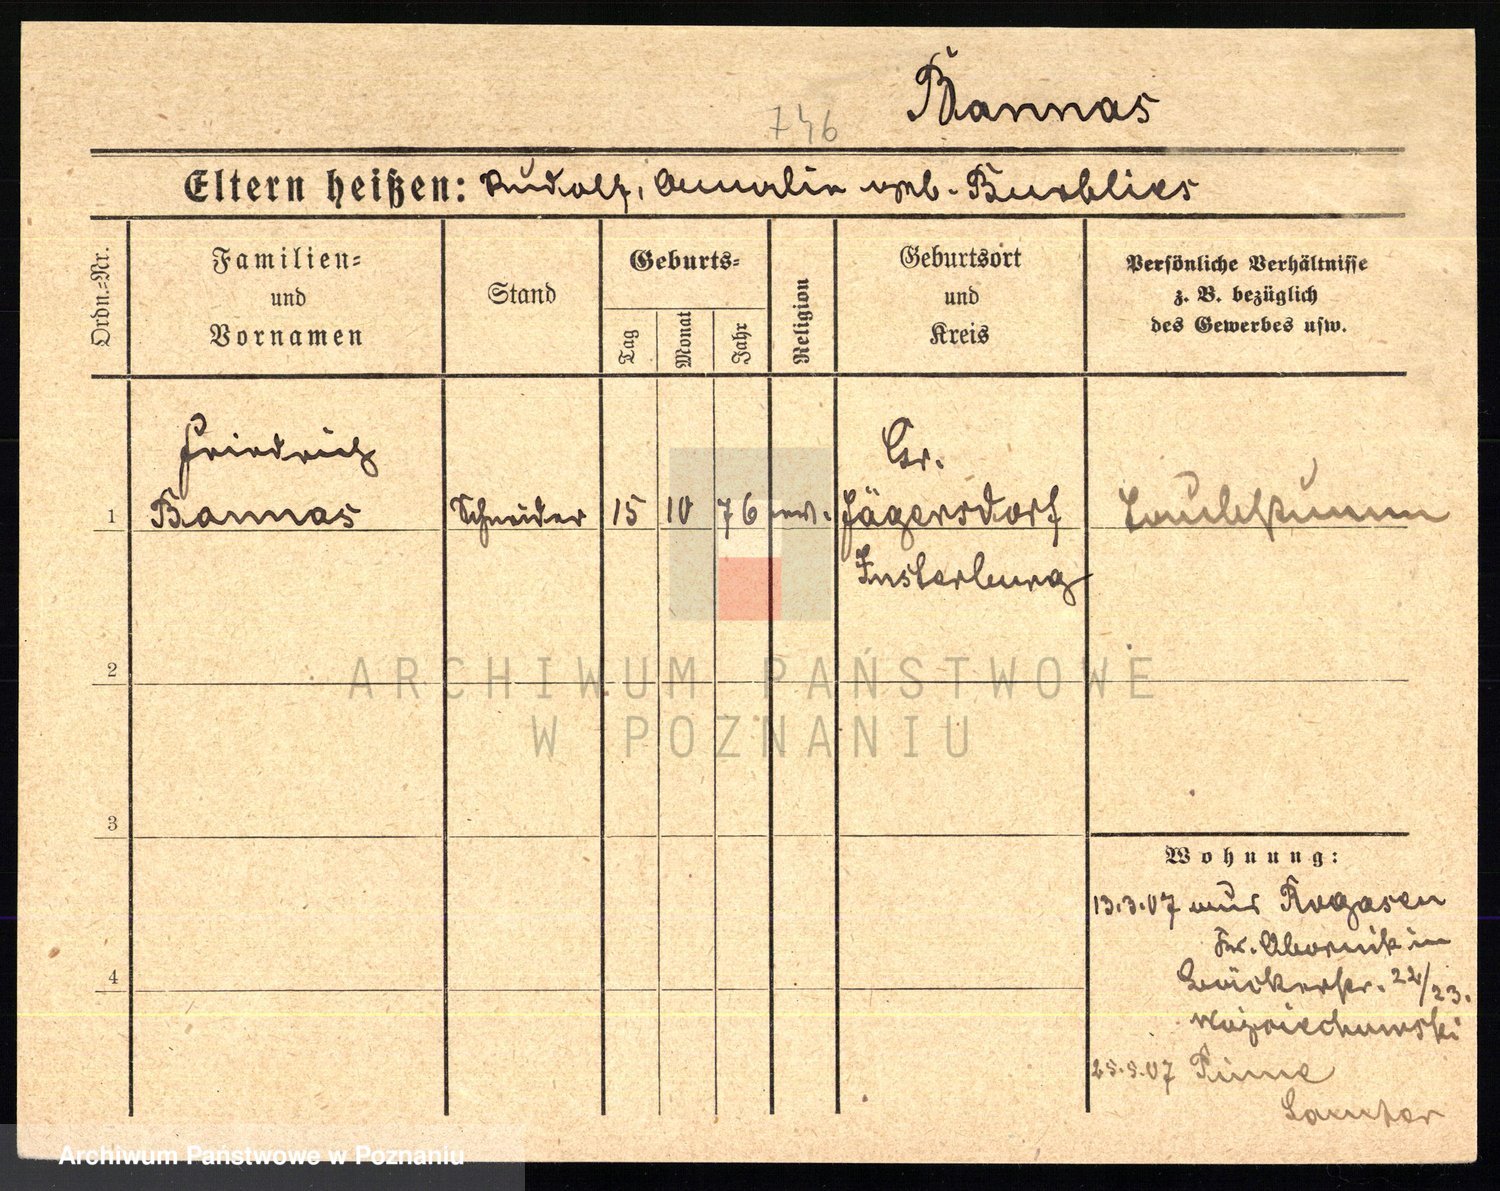 Bannas
746
Eltern heißen: Rudolf, Amalie geb.
Ordn.=Nr.
Familien=
und
Vornamen
Stand
Geburts=
Tag
Monat
Jahr
Religion
Geburtsort
und
Kreis
Persönliche Verhältnisse
z. B. bezüglich
des Gewerbes usw.
Friedrich
Gr.
1 Bannas Schneider 15 10 76 ev. Jägersdorf
Insterburg
2
ARCHIWUM PAŃSTWOWE
W POZNANIU
3
Wohnung:
13.3.07 aus Rogasen
Kr. Obornik in
4
Bäckerstr. 22/23.
Wojciechowski
25.5.07 Pinne
Samter
Archiwum Państwowe w Poznaniu